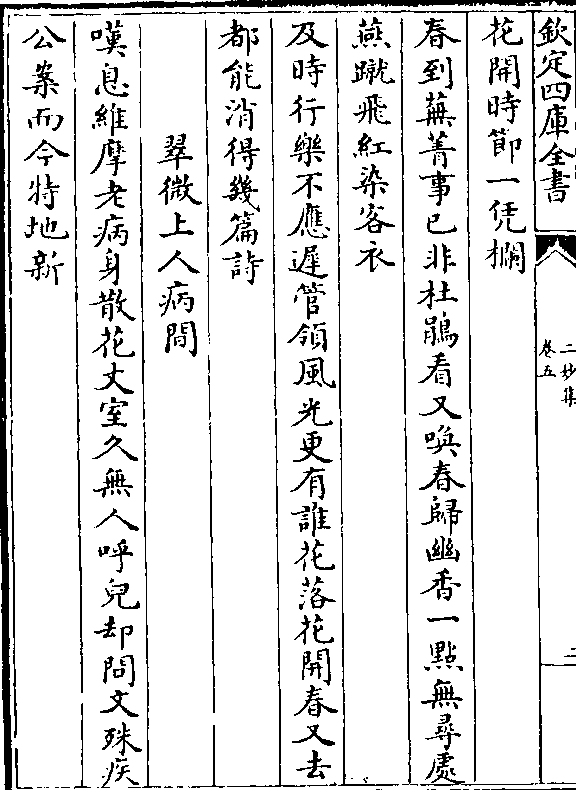 欽定四庫全書
二妙集
卷五
二
花開時節一凭欄
春到蕪菁事已非杜鵑看又喚春歸幽香一點無尋處
燕蹴飛紅染客衣
及時行樂不應遲管領風光更有誰花落花開春又去
都能消得幾篇詩
翠微上人病間
嘆息維摩老病身散花丈室久無人呼兒却問文殊疾
公案而今特地新